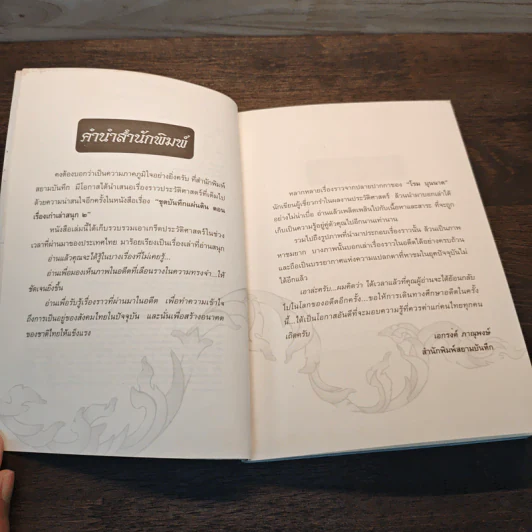 คำนำสำนักพิมพ์
คงต้องบอกว่าเป็นความภาคภูมิใจอย่างยิ่งครับ ที่สำนักพิมพ์
สยามบันทึก มีโอกาสได้นำเสนอเรื่องราวประวัติศาสตร์ที่เต็มไป
ด้วยความน่าสนใจอีกครั้งในหนังสือเรื่อง "ชุดบันทึกแผ่นดิน ตอน
เรื่องเก่าเล่าสนุก ๒"
หนังสือเล่มนี้ได้เก็บรวบรวมเอาเกร็ดประวัติศาสตร์ในช่วง
เวลาที่ผ่านมาของประเทศไทย มาร้อยเรียงเป็นเรื่องเล่าที่อ่านสนุก
อ่านแล้วคุณจะได้รู้ในบางเรื่องที่ไม่เคยรู้...
อ่านเพื่อมองเห็นภาพในอดีตที่เลือนรางในความทรงจำ...ให้
ชัดเจนยิ่งขึ้น
อ่านเพื่อรับรู้เรื่องราวที่ผ่านมาในอดีต เพื่อทำความเข้าใจ
ถึงการเป็นอยู่ของสังคมไทยในปัจจุบัน และนั่นเพื่อสร้างอนาคต
ของชาติไทยให้แข็งแรง
หลากหลายเรื่องราวจากปลายปากกาของ "โรม บุนนาค"
นักเขียนผู้เชี่ยวกรำในผลงานประวัติศาสตร์ ล้วนนำมาบอกเล่าได้
อย่างไม่น่าเบื่อ อ่านแล้วเพลิดเพลินไปกับเนื้อหาและสาระ ที่จะถูก
เก็บเป็นความรู้อยู่คู่ตัวคุณไปอีกนานเท่านาน
รวมไปถึงรูปภาพที่นำมาประกอบเรื่องราวนั้น ล้วนเป็นภาพ
หาชมยาก บางภาพนั้นบอกเล่าเรื่องราวในอดีตได้อย่างครบถ้วน
และถือเป็นบรรยากาศแห่งความแปลกตาที่หาชมในยุคปัจจุบันไม่
ได้อีกแล้ว
เอาล่ะครับ...ผมคิดว่า ได้เวลาแล้วที่คุณผู้อ่านจะได้ย้อนกลับ
ไปในโลกของอดีตอีกครั้ง...ขอให้การเดินทางศึกษาอดีตในครั้ง
นี้...ให้เป็นโอกาสอันดีที่จะมอบความรู้ที่ควรค่าแก่คนไทยทุกคน
เถิดครับ
เอกรงค์ ภาณุพงษ์
สำนักพิมพ์สยามบันทึก